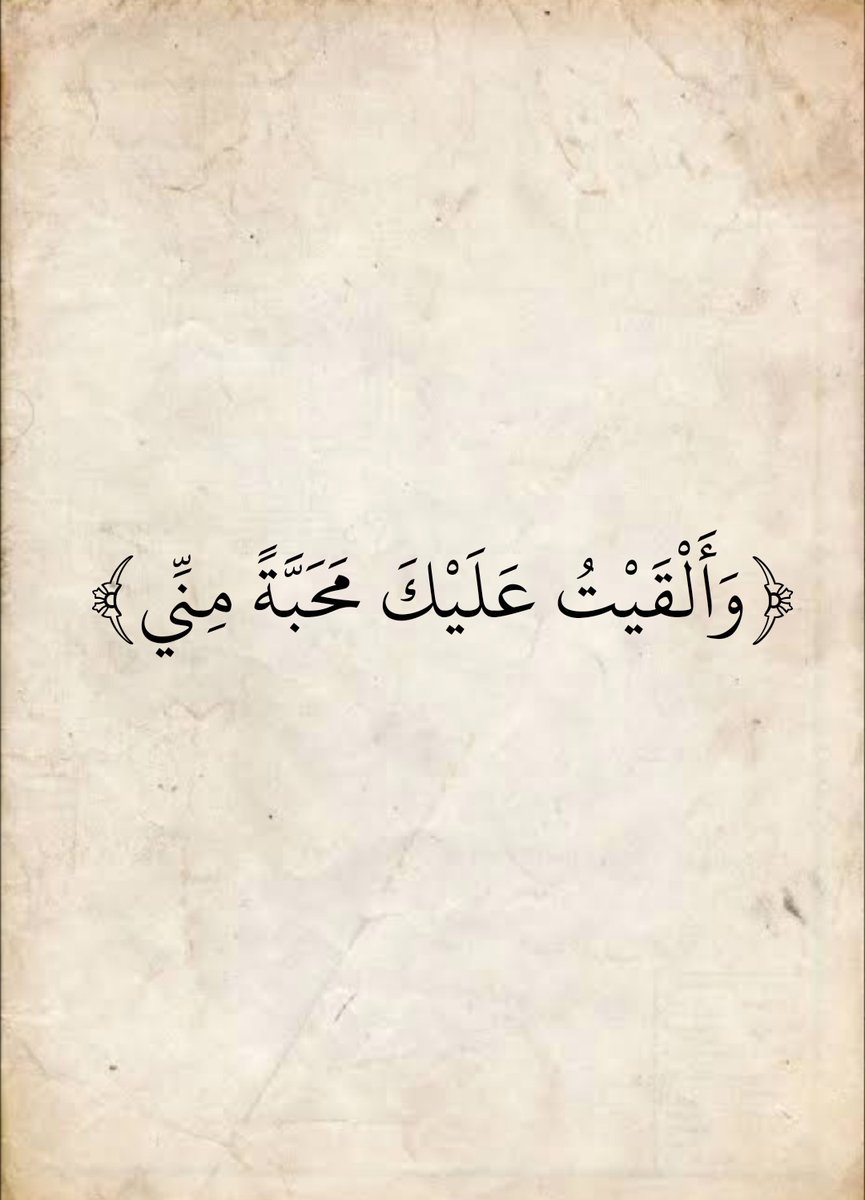 ﴿وَأَلْقَيْتُ عَلَيْكَ مَحَبَّةً مِنِّي﴾